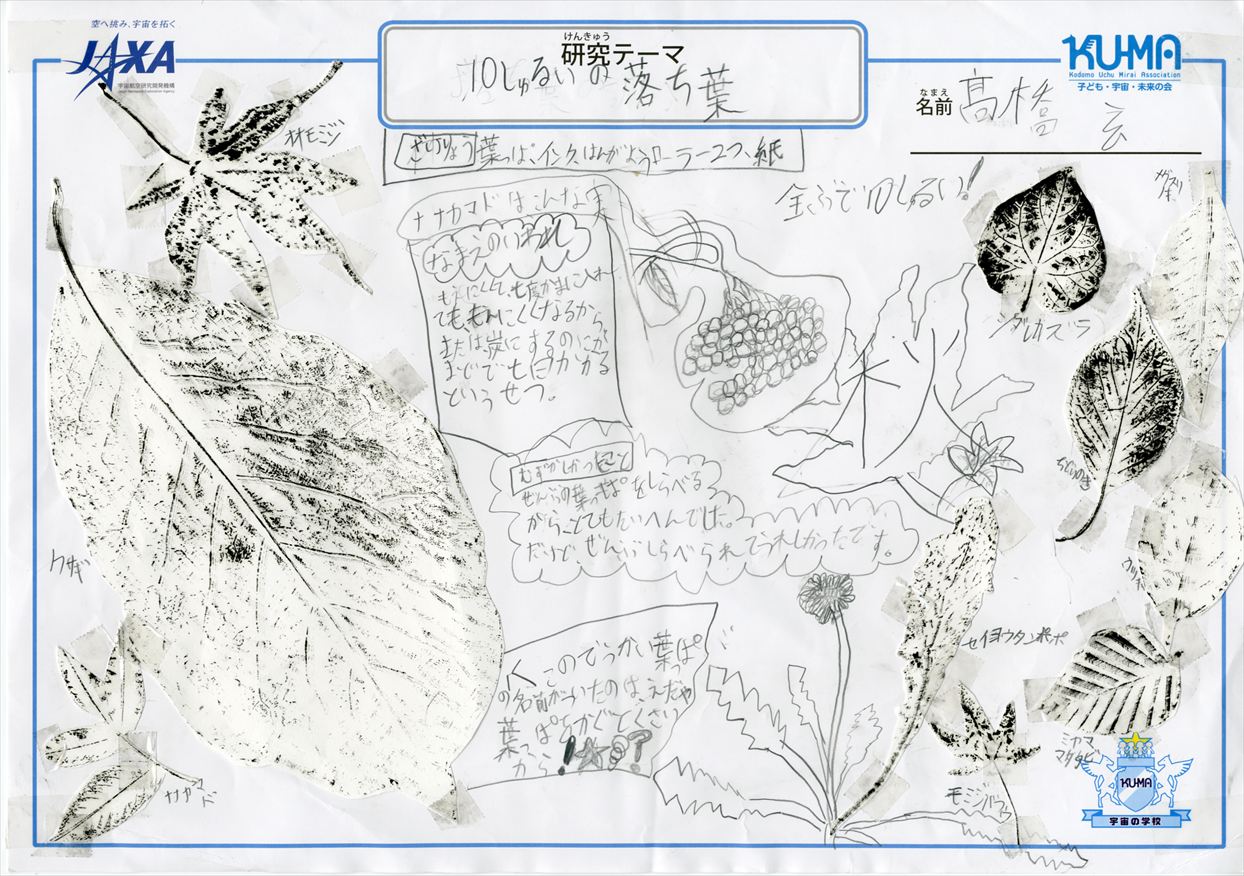 空へ挑み、宇宙を拓く
JAXA
宇宙航空研究開発機構
Japan Aerospace Exploration Agency
けんきゅう
研究テーマ
10しゅるいの落ち葉
KU-MA
Kodomo Uchu Mirai Association
子ども・宇宙・未来の会
なまえ
名前
髙橋 玄
ざいりょう 葉っぱ、インク、はんがようローラー2つ、紙
全ぶで10しゅるい!
オオモミジ
ナナカマドはこんな実
なまえのいわれ
もえにくくて、七度かまに入れ
てももえにくくなるから
または炭にするのに
までで七日かかる
というせつ。
シダレカズラ
むずかしかったこと
ぜんぶの葉っぱをしらべる
がとてもたいへんでした。
だけど、ぜんぶしらべられてうれしかったです。
クサギ
ウツギ
セイヨウタンポポ
このでっかい葉っぱ
の名前がついたのは、えだや
葉っぱとかがくさい
から!
ナナカマド
モミジバフウ
ミヤママタタビ
KU-MA
宇宙の学校